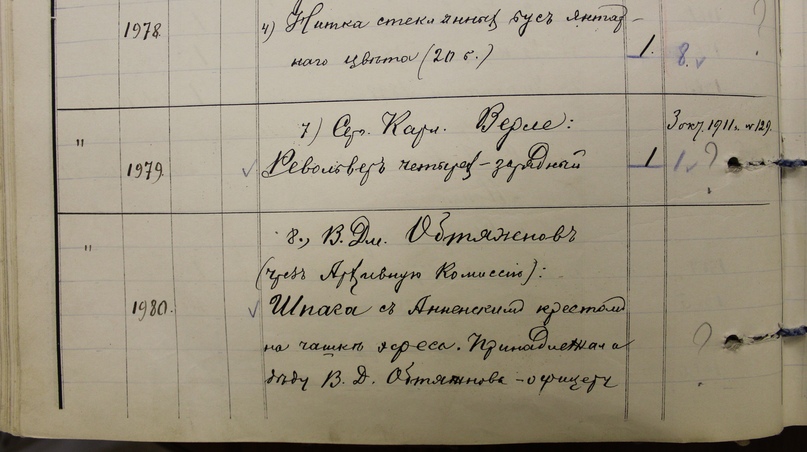 1978. 4) Нитка стеклянныхъ бусъ янтар-
наго цвѣта (20 б.) 1. 8.
7) Сер. Карл. Верле: 3 окт. 1911 г. № 129.
" 1979 Револьверъ четырех-зарядный 1 1 ?
" 8., В. Дм. Обтяжновъ
(чрезъ Архивную Комиссію):
1980. Шпага съ Анненскимъ крестомъ
на чашкѣ эфеса. Принадлежала ?
дѣду В. Д. Обтяжнова - офицеру